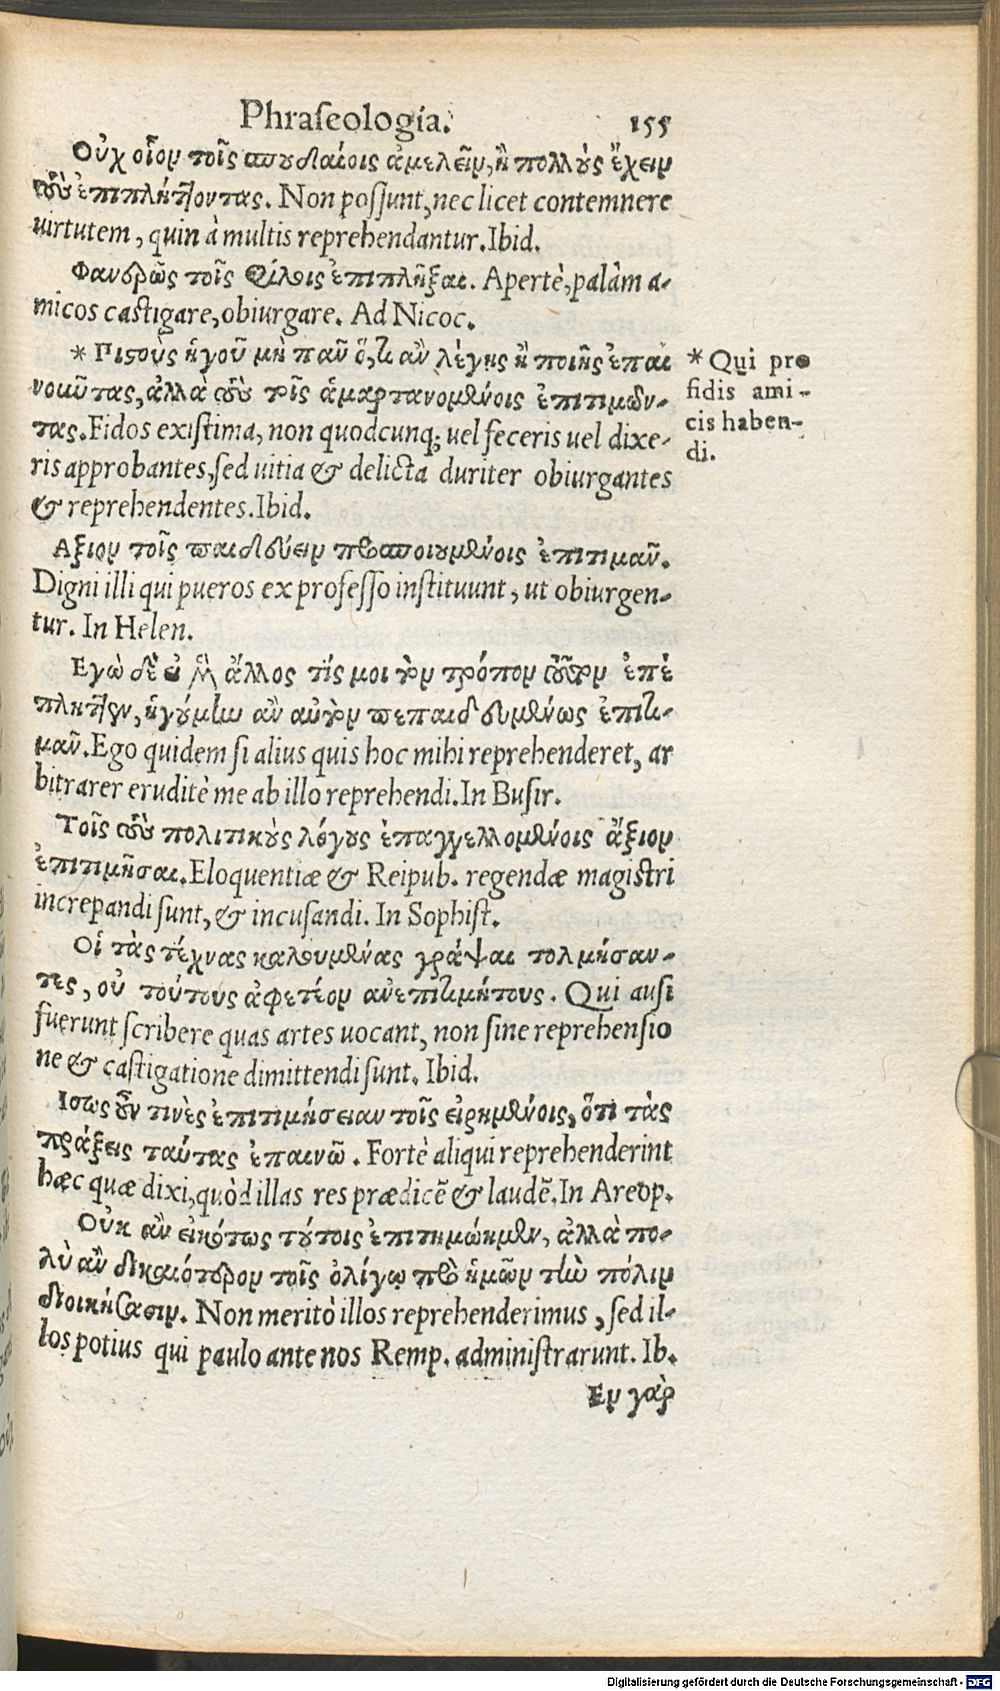 Phraſeologia. 155
Οὐχ οἷον τοῖς σπουδαίοις ἀμελεῖν, ἢ πολλοὺς ἔχειν
τοὺς ἐπιπλήττοντας. Non poſſunt, nec licet contemnere
uirtutem, quin à multis reprehendantur. Ibid.
Φανερῶς τοῖς φίλοις ἐπιπλῆξαι. Apertè, palàm a-
micos caſtigare, obiurgare. Ad Nicoc.
* Πιστοὺς ἡγοῦ μὴ πᾶν ὅ, τι ἂν λέγῃς ἢ ποιῇς ἐπαι
νοῦντας, ἀλλὰ τοὺς τοῖς ἁμαρτανομένοις ἐπιτιμῶν-
τας. Fidos exiſtima, non quodcunq; uel feceris uel dixe-
ris approbantes, ſed uitia & delicta duriter obiurgantes
& reprehendentes. Ibid.
* Qui pro
fidis ami-
cis haben-
di.
Αξιον τοῖς παιδεύειν προσποιουμένοις ἐπιτιμᾶν.
Digni illi qui pueros ex profeſſo inſtituunt, ut obiurgen-
tur. In Helen.
Εγὼ δὲ εἰ μὲν ἄλλος τίς μοι τὸν τρόπον τοῦτον ἐπέ
πληττεν, ἡγούμην ἂν αὐτὸν πεπαιδευμένως ἐπιτι-
μᾶν. Ego quidem ſi alius quis hoc mihi reprehenderet, ar
bitrarer eruditè me ab illo reprehendi. In Buſir.
Τοῖς τοὺς πολιτικοὺς λόγους ἐπαγγελλομένοις ἄξιον
ἐπιτιμῆσαι. Eloquentiæ & Reipub. regendæ magiſtri
increpandi ſunt, & incuſandi. In Sophiſt.
Οἱ τὰς τέχνας καλουμένας γράψαι τολμήσαν-
τες, οὐ τούτους ἀφετέον ἀνεπιτιμήτους. Qui auſi
fuerunt ſcribere quas artes uocant, non ſine reprehenſio
ne & caſtigatione dimittendi ſunt. Ibid.
Ισως οὖν τινὲς ἐπιτιμήσειαν τοῖς εἰρημένοις, ὅτι τὰς
πράξεις ταύτας ἐπαινῶ. Fortè aliqui reprehenderint
hæc quæ dixi, quòd illas res prædicē & laudē. In Areop.
Οὐκ ἂν εἰκότως τούτοις ἐπιτιμῴημεν, ἀλλὰ πο-
λὺ ἂν δικαιότερον τοῖς ὀλίγῳ πρὸ ἡμῶν τὴν πόλιν
διοικήσασιν. Non meritò illos reprehenderimus, ſed il-
los potius qui paulo ante nos Remp. adminiſtrarunt. Ib.
Εν γὰρ
Digitalisierung gefördert durch die Deutsche Forschungsgemeinschaft - DFG